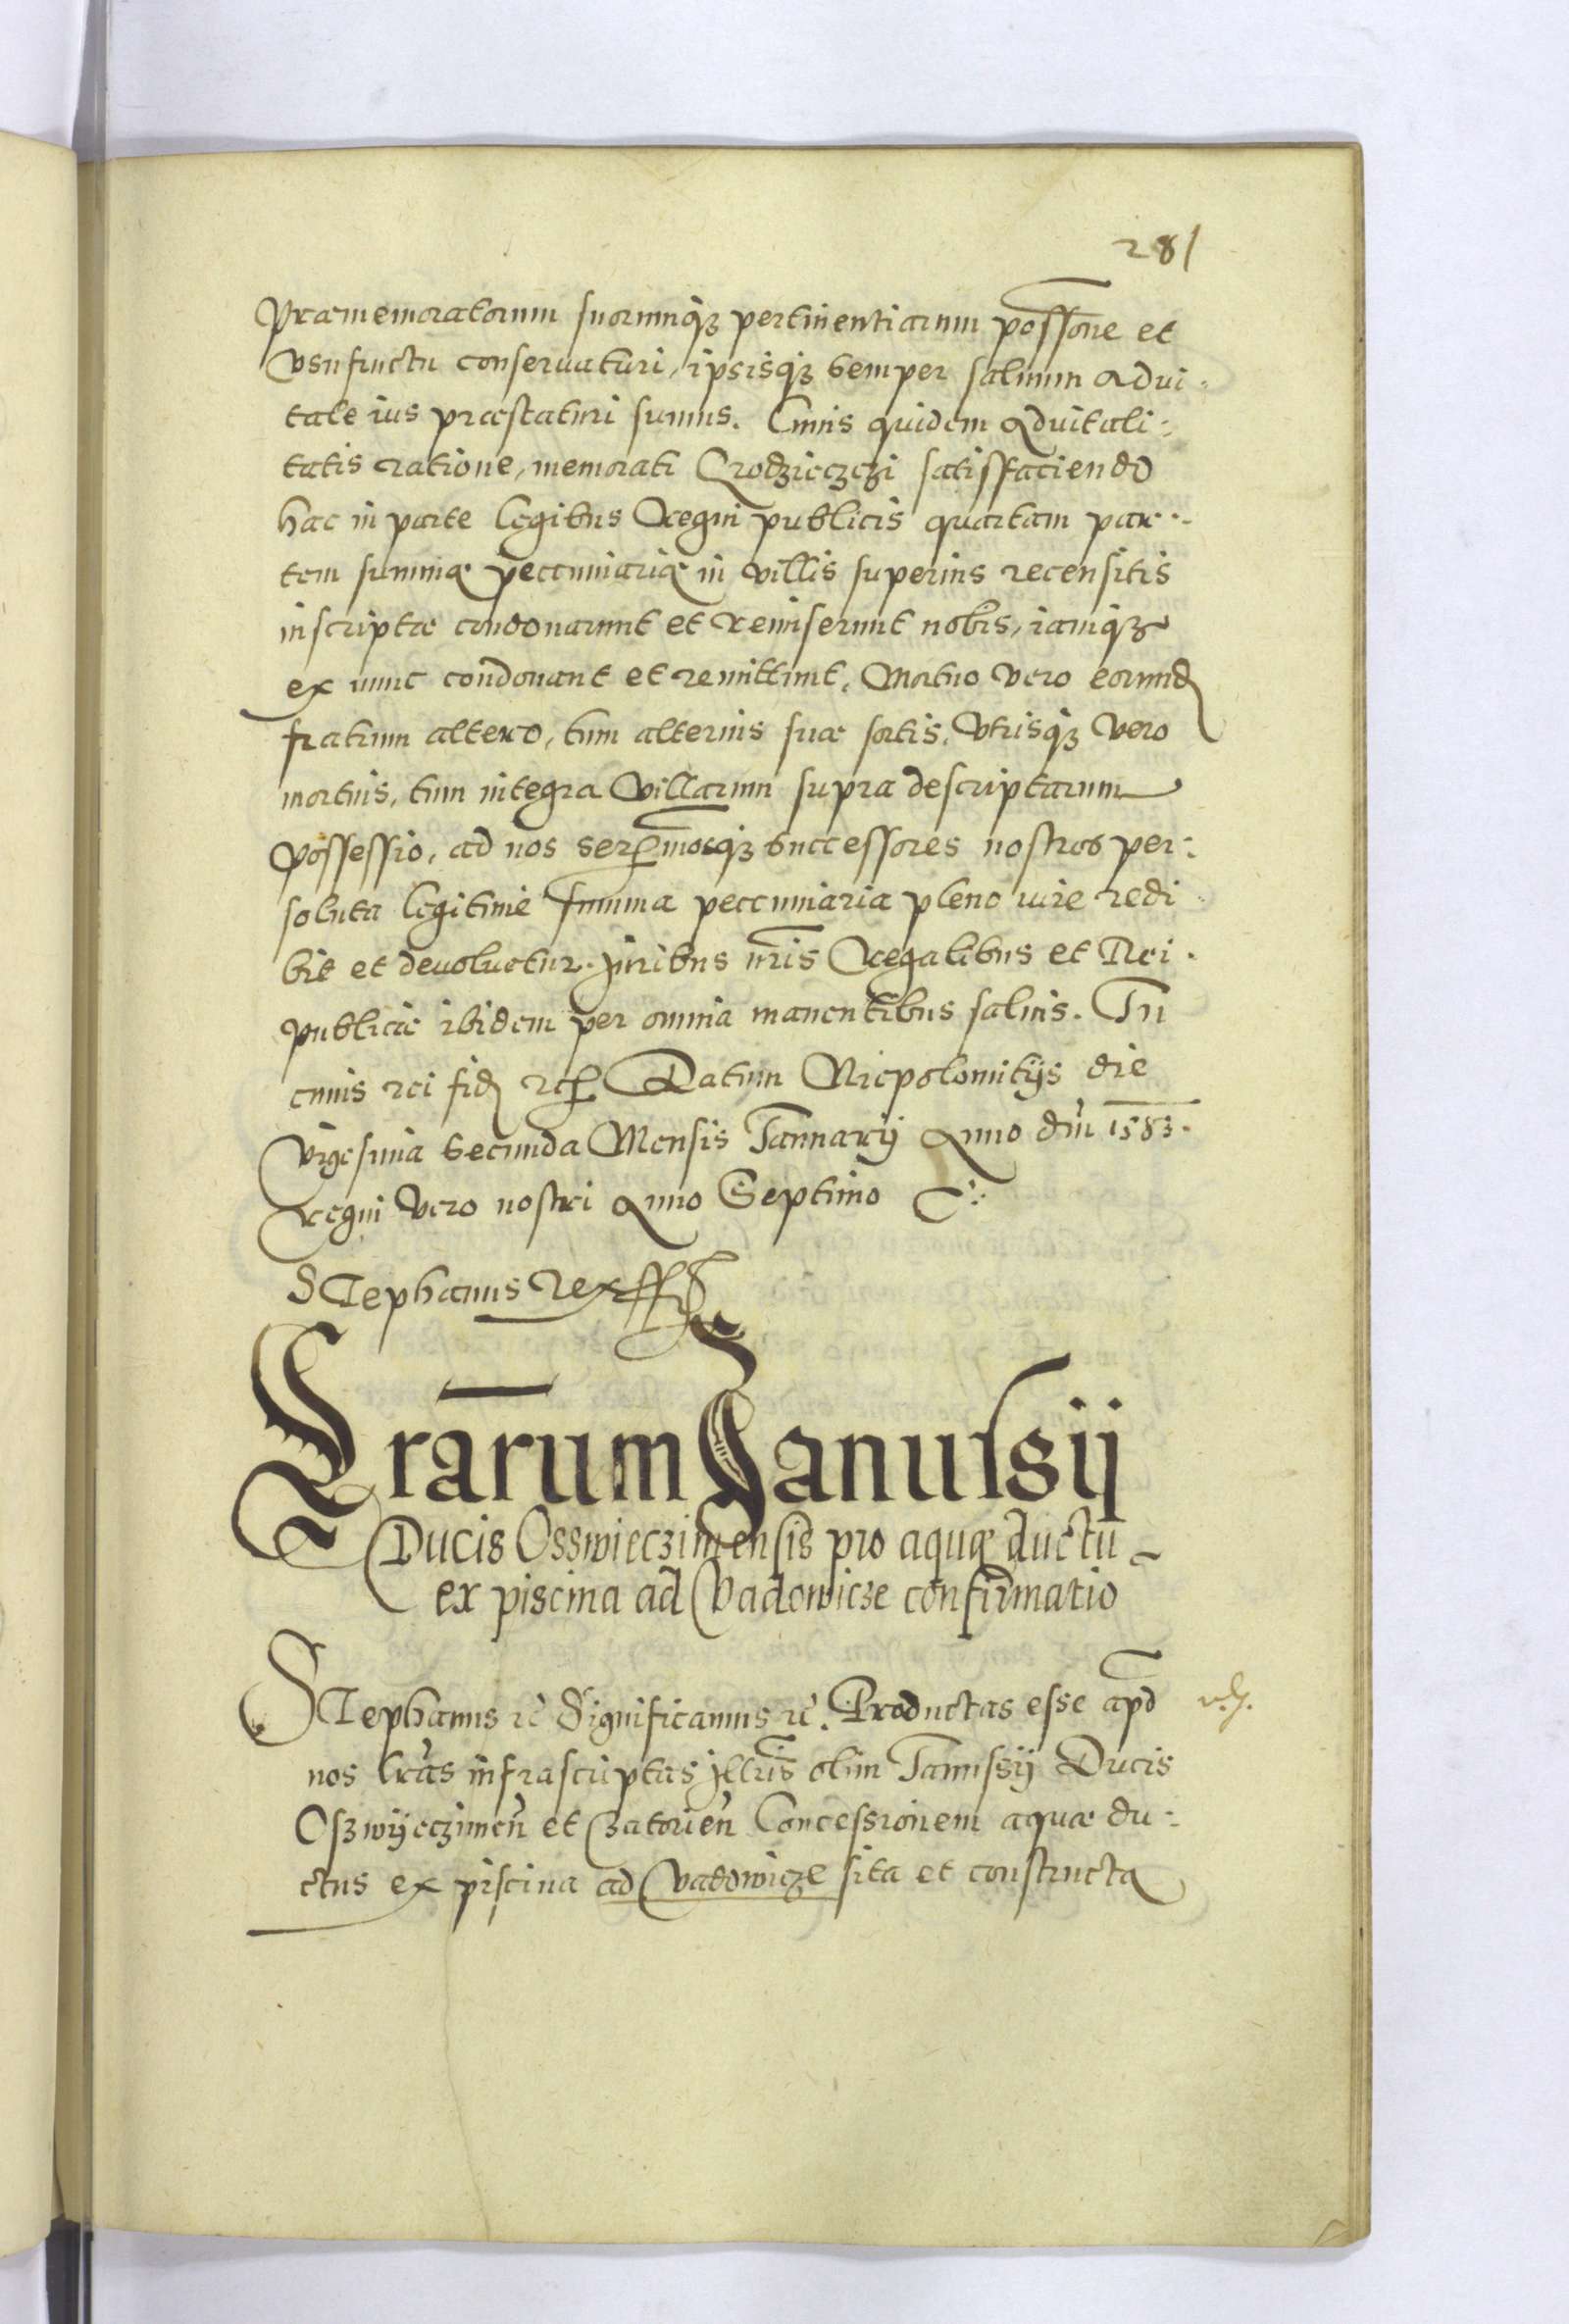 281
Præmemoratorum suorumq́ȝ pertinentiarum possone et
vsufructu conseruaturi, ipsisq́ȝ semper saluum advi-
tale ius præstaturi sumus. Cuius quidem aduitali-
tatis ratione, memorati Grodzieczczi satisfaciendo
hac in parte legibus Regni publicis quartam par-
tem summæ pecuniariæ in villis superius recensitis
inscriptæ condonarunt et remiserunt nobis, iamq́ȝ
ex nunc condonant et remittunt. Mortuo vero eorund
fratrum altero, tum alterius suæ sortis, vtrisq́ȝ vero
mortuis, tum integra Villarum supra descriptarum
possessio, ad nos Sermosq́ȝ successores nostros per-
soluta legitime summa peccuniaria pleno iure redi
bit et deuoluetur. Juribus nris Regalibus et Rei-
publicæ ibidem per omnia manentibus saluis. In
cuius rei fid etc Datum Niepolomitijs die
Vigesima Secunda Mensis Januarij Anno dni 1583.
regni vero nostri Anno Septimo
Stephanus Rex sst
Lrarum Janussij
Ducis Osswieczimensis pro aquæ ductu
ex piscina ad Vadowicze confirmatio
Stephanus etc Significamus etc. Productas esse apd
nos lras infrascriptas Jllris olim Janussij Ducis
Oszwijeczimen et Zatorien Concessionem aquæ du-
ctus ex piscina ad Vadowicze sita et constructa